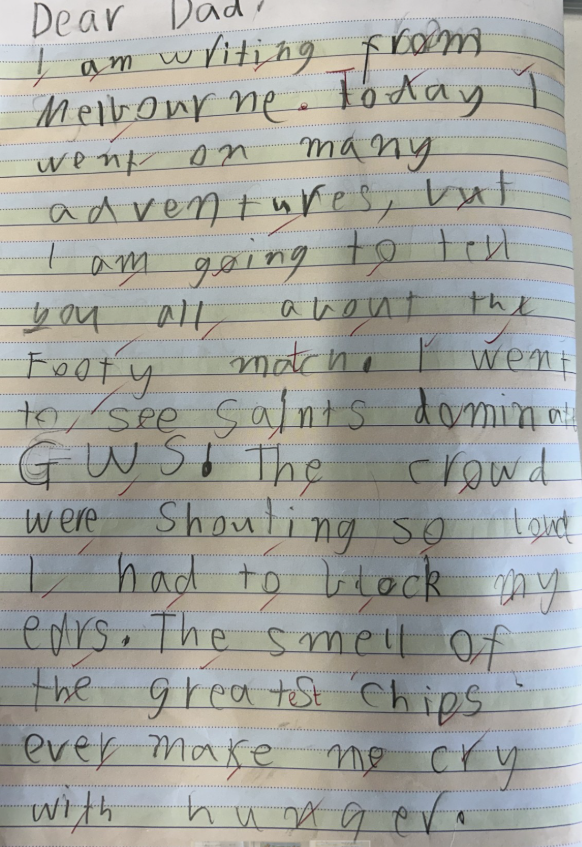 Dear Dad,
I am writing from
Melbourne. Today I
went on many
adventures, but
I am going to tell
you all about the
Footy match. I went
to see Saints dominate
GWS. The crowd
were shouting so loud
I had to block my
ears. The smell of
the greatest chips
ever make me cry
with hunger.